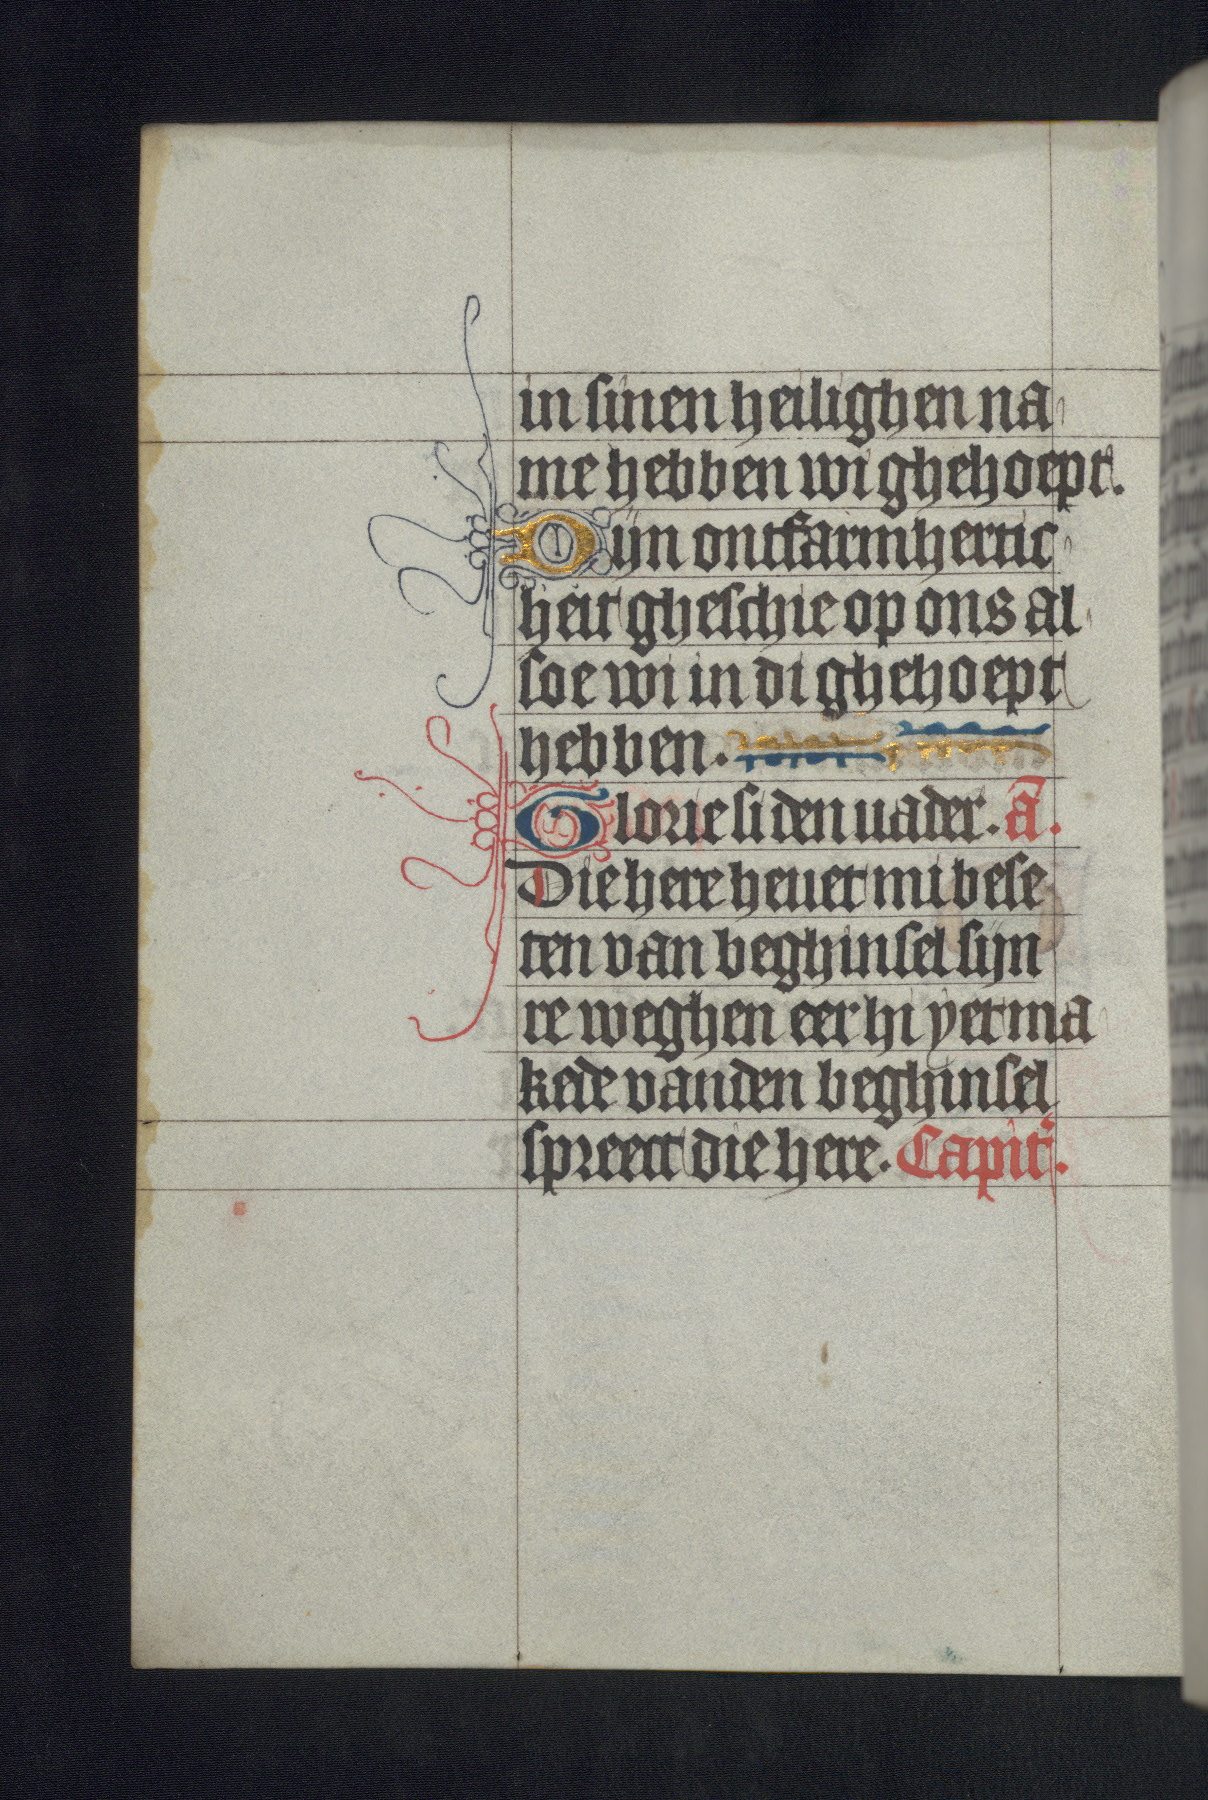 in sinen heilighen na
me hebben wi ghehoept.
Dijn ontfarmhertic
heit gheschie op ons al
soe wi in di ghehoept
hebben.
Glorie si den uader. ā.
Die here heuet mi bese
ten van beghinsel sijn
re weghen eer hi yet ma
kede vanden beghinsel
spreect die here. Capit̄.